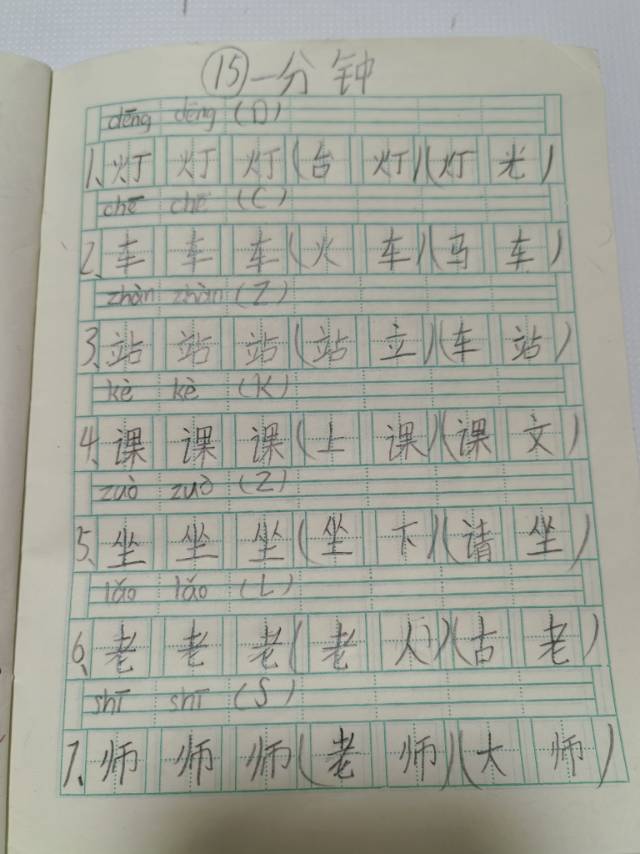 ⑮一分钟
dēng dēng (D)
1、灯 灯 灯(台 灯)(灯 光)
chē chē (C)
2、车 车 车(火 车)(马 车)
zhàn zhàn (Z)
3、站 站 站(站 立)(车 站)
kè kè (K)
4、课 课 课(上 课)(课 文)
zuò zuò (Z)
5、坐 坐 坐(坐 下)(请 坐)
lǎo lǎo (L)
6、老 老 老(老 人)(古 老)
shī shī (S)
7、师 师 师(老 师)(大 师)